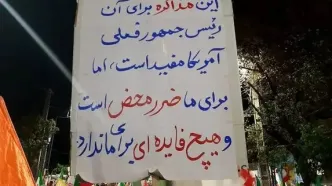 این مذاکره برای آن
رئیس جمهور فعلی
آمریکا مفید است، اما
برای ما ضرر محض است
و هیچ فایده ای برای ما ندارد